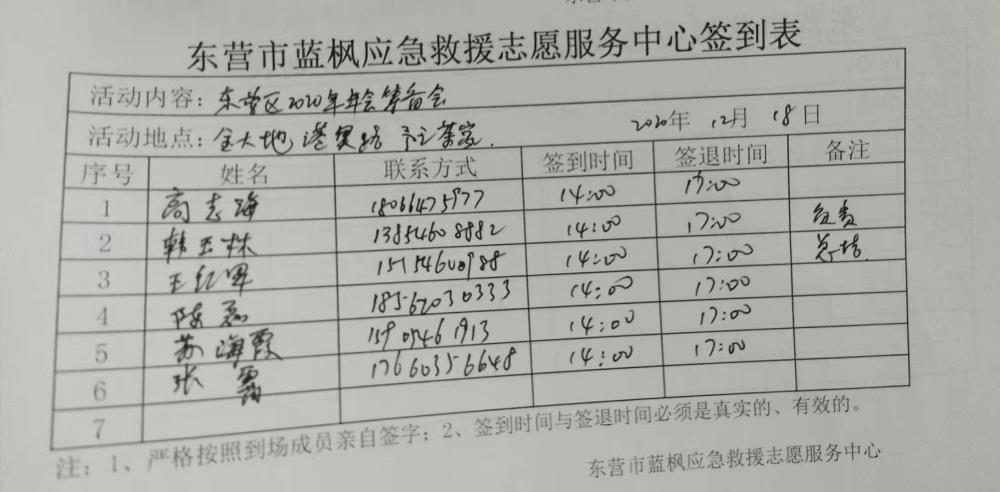 东营市蓝枫应急救援志愿服务中心签到表
活动内容：东营区2020年年会筹备会
活动地点：金大地港奥路 茶家. 2020年 12月 18日
序号 姓名 联系方式 签到时间 签退时间 备注
1 高志海 18066475977 14:00 17:00
2 韩玉林 13854608882 14:00 17:00 负责
3 王红军 15154600988 14:00 17:00 总结
4 陈磊 18562030333 14:00 17:00
5 苏海霞 15905461913 14:00 17:00
6 张霞 17660356648 14:00 17:00
7
注：1、严格按照到场成员亲自签字；2、签到时间与签退时间必须是真实的、有效的。
东营市蓝枫应急救援志愿服务中心